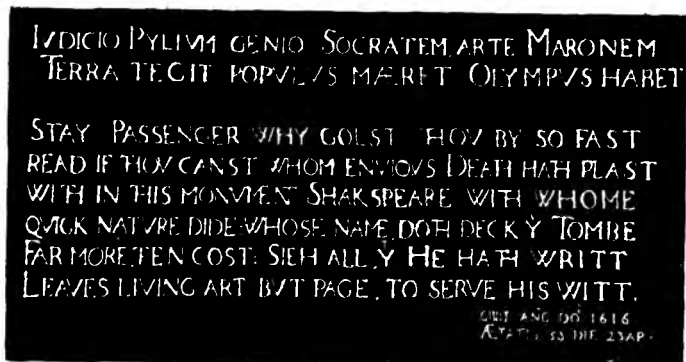 IVDICIO PYLIVM GENIO SOCRATEM, ARTE MARONEM
TERRA TEGIT POPVLVS MÆRET OLYMPVS HABET
STAY PASSENGER WHY GOEST THOV BY SO FAST
READ IF THOV CANST WHOM ENVIOVS DEATH HATH PLAST
WITH IN THIS MONVMENT SHAKSPEARE WITH WHOME
QVICK NATVRE DIDE WHOSE NAME, DOTH DECK Y̓ TOMBE
FAR MORE, TEN COST: SIEH ALL, Y̓ HE HATH WRITT
LEAVES LIVING ART BVT PAGE, TO SERVE HIS WITT.
OBIIT ANO DO' 1616
ÆTATIS 53 DIE 23 AP·